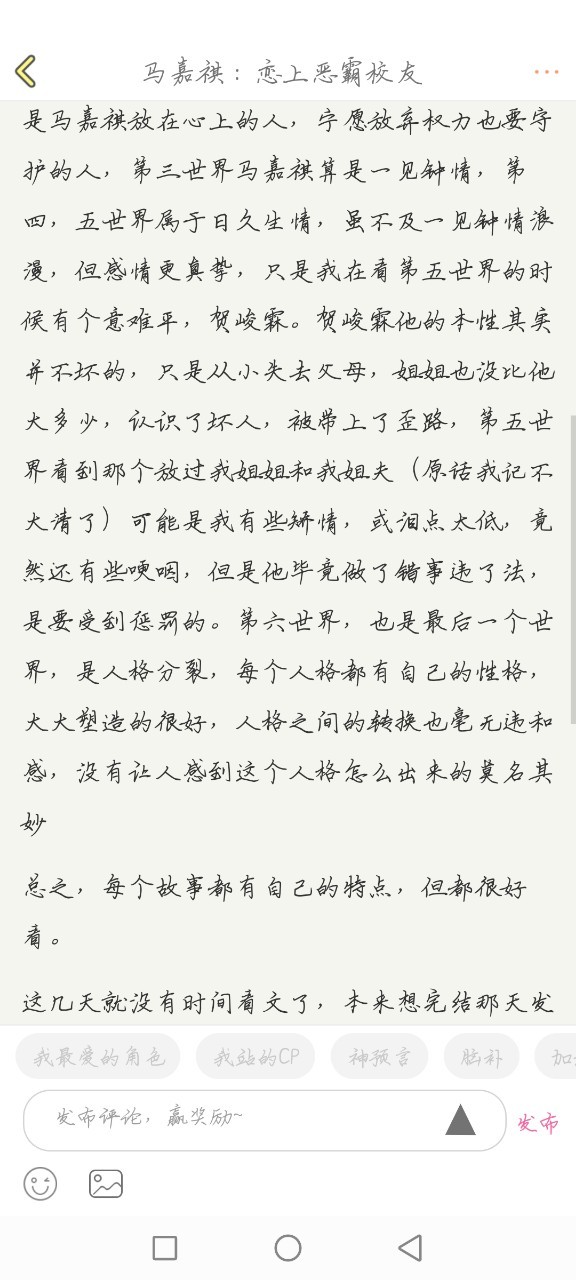 马嘉祺：恋上恶霸校友
是马嘉祺放在心上的人，宁愿放弃权力也要守
护的人，第三世界马嘉祺算是一见钟情，第
四，五世界属于日久生情，虽不及一见钟情浪
漫，但感情更真挚，只是我在看第五世界的时
候有个意难平，贺峻霖。贺峻霖他的本性其实
并不坏的，只是从小失去父母，姐姐也没比他
大多少，认识了坏人，被带上了歪路，第五世
界看到那个放过我姐姐和我姐夫（原话我记不
大清了）可能是我有些矫情，或泪点太低，竟
然还有些哽咽，但是他毕竟做了错事违了法，
是要受到惩罚的。第六世界，也是最后一个世
界，是人格分裂，每个人格都有自己的性格，
大大塑造的很好，人格之间的转换也毫无违和
感，没有让人感到这个人格怎么出来的莫名其
妙
总之，每个故事都有自己的特点，但都很好
看。
这几天就没有时间看文了，本来想完结那天发
我最爱的角色 我站的CP 神预言 脑补
发布评论，赢奖励~ 发布